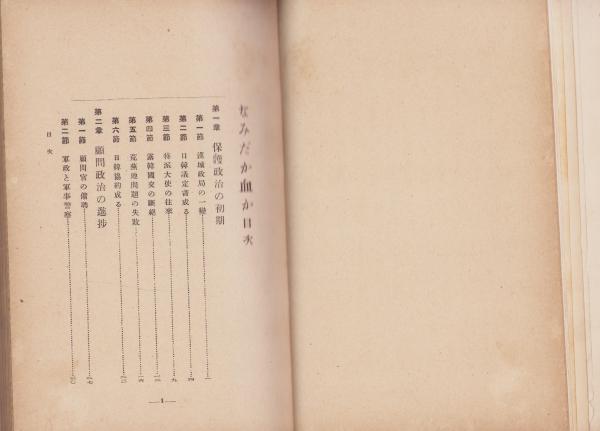 なみだか血か目次
第一章　保護政治の初期
第一節　漢城政局の一變……一
第二節　日韓議定書成る……四
第三節　特派大使の往來……九
第四節　露韓國交の斷絕
第五節　荒蕪地問題の失敗
第六節　日韓協約成る
第二章　顧問政治の進捗
第一節　顧問官の傭聘
第二節　軍政と軍事警察
目次
—1—